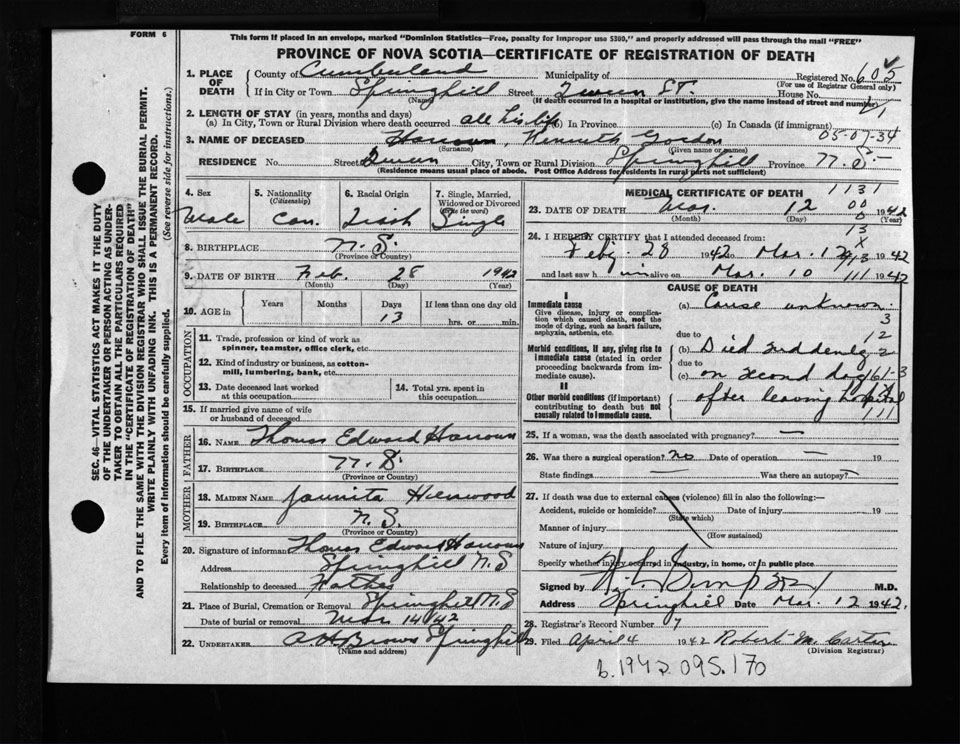 FORM 6
This form if placed in an envelope, marked "Dominion Statistics—Free, penalty for improper use $300," and properly addressed will pass through the mail "FREE"
PROVINCE OF NOVA SCOTIA—CERTIFICATE OF REGISTRATION OF DEATH
SEC. 46—VITAL STATISTICS ACT MAKES IT THE DUTY
OF THE UNDERTAKER OR PERSON ACTING AS UNDER-
TAKER TO OBTAIN ALL THE PARTICULARS REQUIRED
IN THE "CERTIFICATE OF REGISTRATION OF DEATH"
AND TO FILE THE SAME WITH THE DIVISION REGISTRAR WHO SHALL ISSUE THE BURIAL PERMIT.
WRITE PLAINLY WITH UNFADING INK. THIS IS A PERMANENT RECORD.
Every item of information should be carefully supplied. (See reverse side for instructions.)
1. PLACE OF DEATH
County of Cumberland Municipality of Registered No. 605
(For use of Registrar General only)
If in City or Town Springhill Street Queen St. House No.
(Name) (If death occurred in a hospital or institution, give the name instead of street and number)
2. LENGTH OF STAY (in years, months and days)
(a) In City, Town or Rural Division where death occurred all his life (b) In Province (c) In Canada (if immigrant)
05-07-34
3. NAME OF DECEASED Kenneth Gordon
(Surname) (Given name or names)
RESIDENCE No. Street Queen City, Town or Rural Division Springhill Province N.S.
(Residence means usual place of abode. Post Office Address for residents in rural parts not sufficient)
4. Sex Male
5. Nationality (Citizenship) Can.
6. Racial Origin Irish
7. Single, Married, Widowed or Divorced (write the word) Single
8. BIRTHPLACE N.S.
(Province or Country)
9. DATE OF BIRTH Feb. 28 1942
(Month) (Day) (Year)
10. AGE in Years Months Days 13 If less than one day old hrs. or min.
OCCUPATION
11. Trade, profession or kind of work as spinner, teamster, office clerk, etc.
12. Kind of industry or business, as cotton-mill, lumbering, bank, etc.
13. Date deceased last worked at this occupation
14. Total yrs. spent in this occupation
15. If married give name of wife or husband of deceased
FATHER
16. NAME Thomas Edward
17. BIRTHPLACE N.S.
(Province or Country)
MOTHER
18. MAIDEN NAME
19. BIRTHPLACE N.S.
(Province or Country)
20. Signature of informant Thomas Edward
Address Springhill N.S
Relationship to deceased Father
21. Place of Burial, Cremation or Removal Springhill N.S
Date of burial or removal Mar 14/42
22. UNDERTAKER Brown Springhill
(Name and address)
MEDICAL CERTIFICATE OF DEATH
1131
23. DATE OF DEATH Mar. 12 1942
(Month) (Day) (Year)
00
24. I HEREBY CERTIFY that I attended deceased from:
13
Feby. 28 1942 to Mar. 1942
and last saw him alive on Mar. 10 1942
CAUSE OF DEATH
I
Immediate cause
Give disease, injury or complication which caused death, not the mode of dying, such as heart failure, asphyxia, asthenia, etc.
Morbid conditions, if any, giving rise to immediate cause (stated in order proceeding backwards from immediate cause).
II
Other morbid conditions (if important) contributing to death but not causally related to immediate cause.
(a) Cause unknown.
3
due to 12
(b) Died suddenly
due to
(c) on second day 161-3
after leaving hospital
111
25. If a woman, was the death associated with pregnancy? —
26. Was there a surgical operation? no Date of operation — 19
State findings — Was there an autopsy? —
27. If death was due to external causes (violence) fill in also the following:—
Accident, suicide or homicide? Date of injury 19
(State which)
Manner of injury
(How sustained)
Nature of injury
Specify whether injury occurred in industry, in home, or in public place
Signed by M.D.
Address Springhill Date Mar. 12 1942.
28. Registrar's Record Number 7
29. Filed April 4 1942 Robert M. Carter
(Division Registrar)
b.1942.095.170